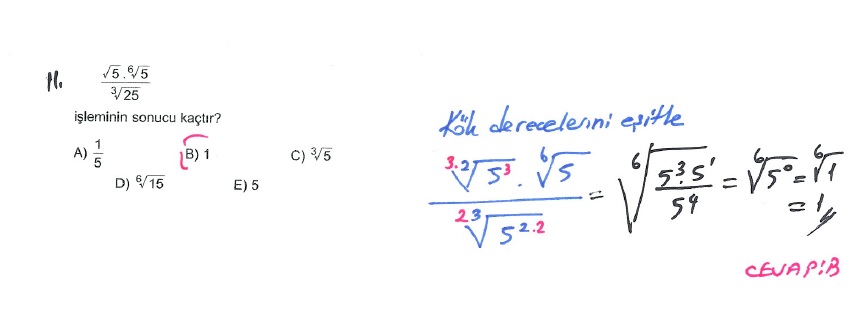 11. √5 . ⁶√5 / ³√25
işleminin sonucu kaçtır?
A) 1/5 B) 1 C) ³√5
D) ⁶√15 E) 5
Kök derecelerini eşitle
³·²√5³ . ⁶√5 / ²·³√5²·² = ⁶√(5³·5¹ / 5⁴) = ⁶√5⁰ = ⁶√1
= 1
CEVAP:B